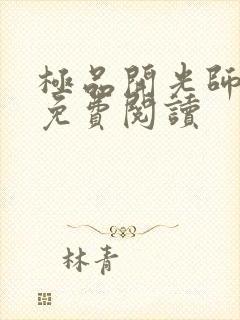 極品開光師
免費閱讀
林青